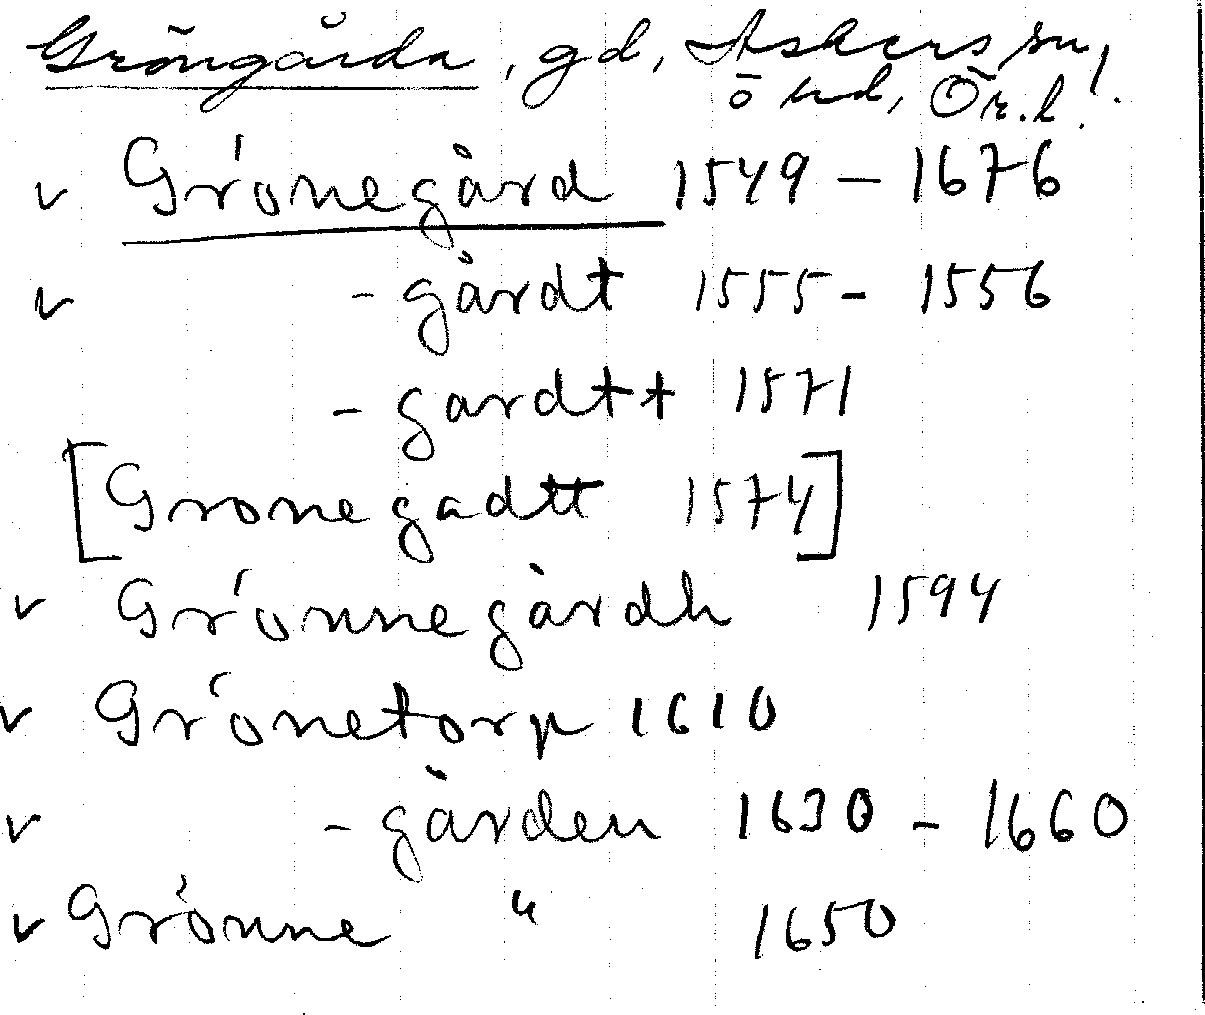 Gröngårda, gd, Askers sn,
ö hd, Ör. l.
v Grönegård 1549 – 1676
v – gårdt 1555 – 1556
– gardtt 1571
[Gronegadtt 1574]
v Grönnegårdh 1594
v Grönetorp 1610
v – gården 1630 – 1660
v Grönne " 1650